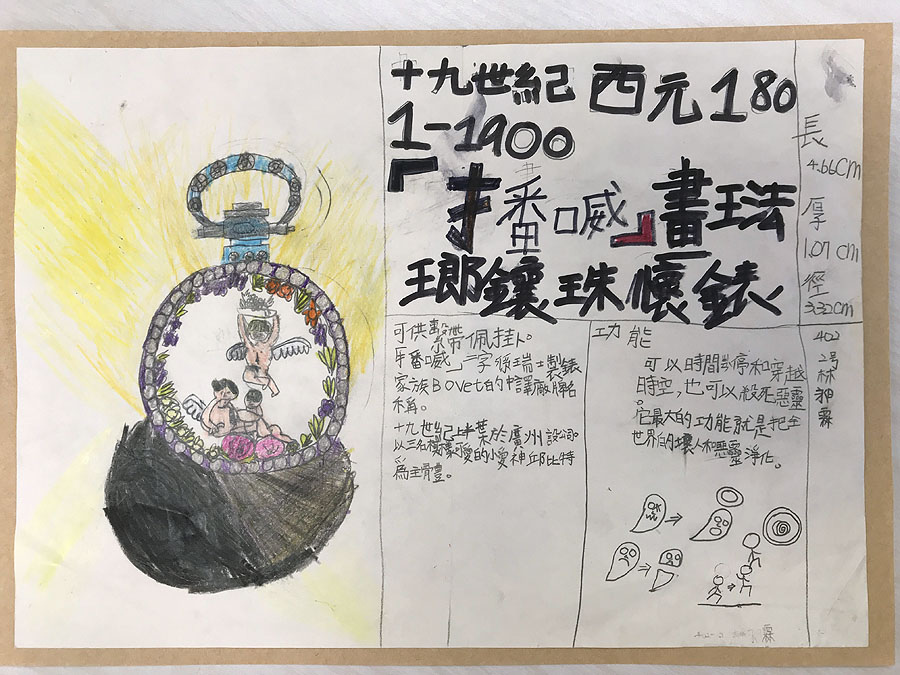 十九世紀 西元180
1-1900
『播喴』畫琺
瑯鑲珠懷錶
長
4.66cm
厚
1.07cm
徑
3.32cm
402
2号
林
霖
可供繫帶佩掛。
播喴二字係瑞士製錶
家族Bovet的中譯廠牌名
稱。
十九世紀上半葉於廣州設公司。
以三名相擁愛的小愛神邱比特
為主體。
功能
可以時間暫停和穿越
時空,也可以殺死惡靈
。它最大的功能就是把全
世界的壞人和惡靈淨化。